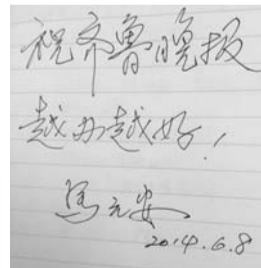 祝齐鲁晚报
越办越好！
马元安
2014.6.8